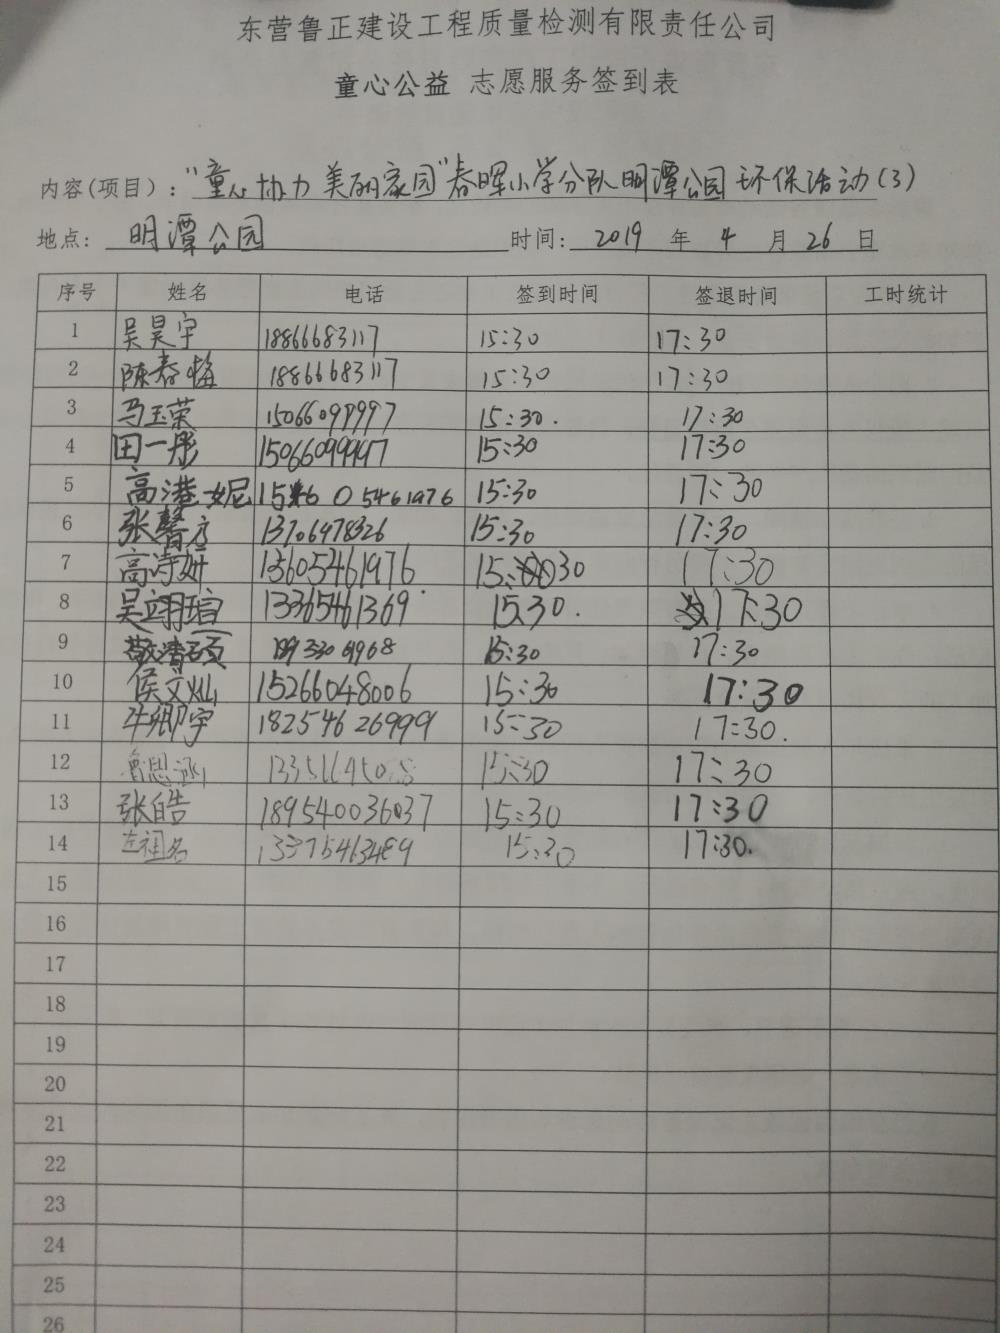 东营鲁正建设工程质量检测有限责任公司
童心公益 志愿服务签到表
内容(项目): "童心协力 美丽家园"春晖小学分队明潭公园环保活动(3)
地点: 明潭公园 时间: 2019 年 4 月 26 日
序号 姓名 电话 签到时间 签退时间 工时统计
1 吴昊宇 18866683117 15:30 17:30
2 陈春梅 18866683117 15:30 17:30
3 马玉荣 15066099997 15:30. 17:30
4 田一彤 15066099997 15:30 17:30
5 高港妮 05461976 15:30 17:30
6 张馨方 13706478326 15:30 17:30
7 高诗妍 13605461976 15:30 17:30
8 吴翊瑄 13365461369 15:30. 17:30
9 15:30 17:30
10 侯文灿 15266048006 15:30 17:30
11 牛卿宇 18254626999 15:30 17:30.
12 鲁思涵 15:30 17:30
13 张皓 189540036037 15:30 17:30
14 15:30 17:30.
15
16
17
18
19
20
21
22
23
24
25
26